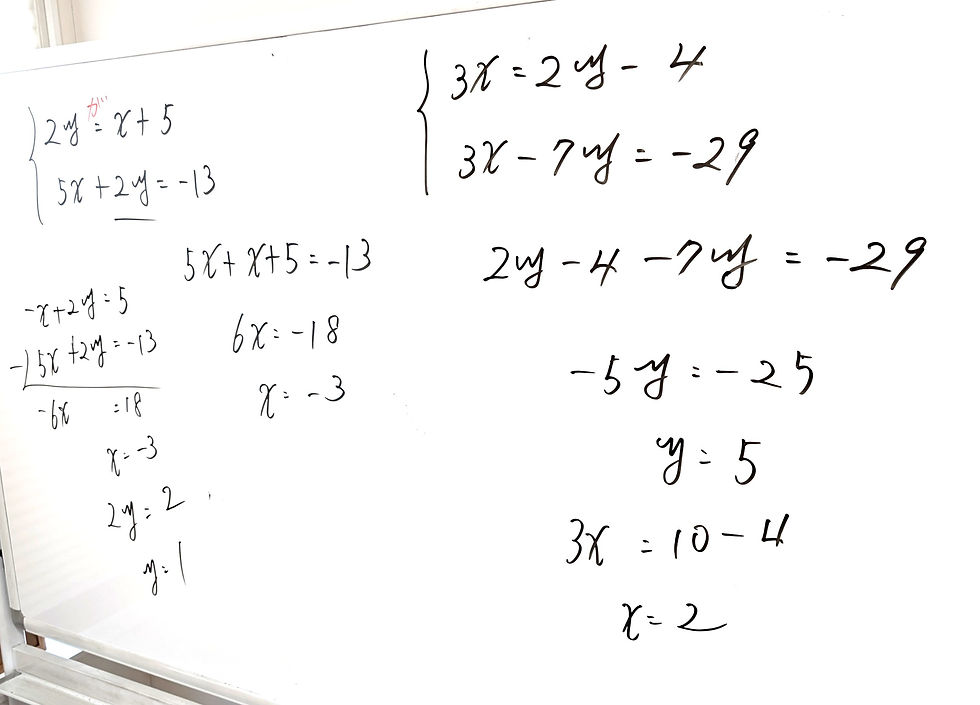 2y = x + 5
が
5x + 2y = -13
5x + x + 5 = -13
6x = -18
x = -3
-x + 2y = 5
-) 5x + 2y = -13
-6x = 18
x = -3
2y = 2
y = 1
3x = 2y - 4
3x - 7y = -29
2y - 4 - 7y = -29
-5y = -25
y = 5
3x = 10 - 4
x = 2